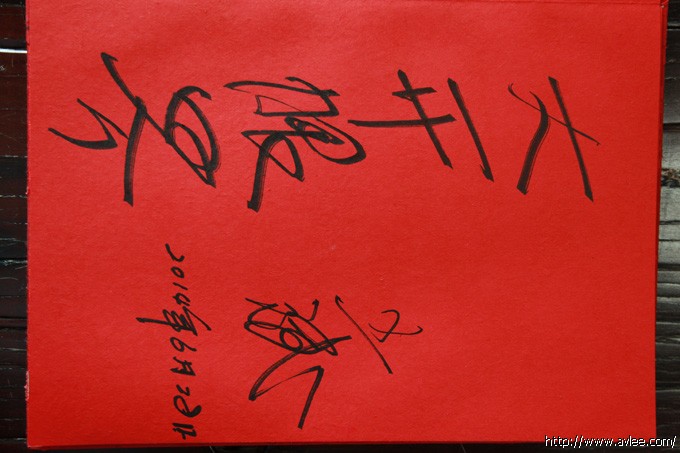 大开眼界
文
2014年6月22日
http://www.avlee.com/